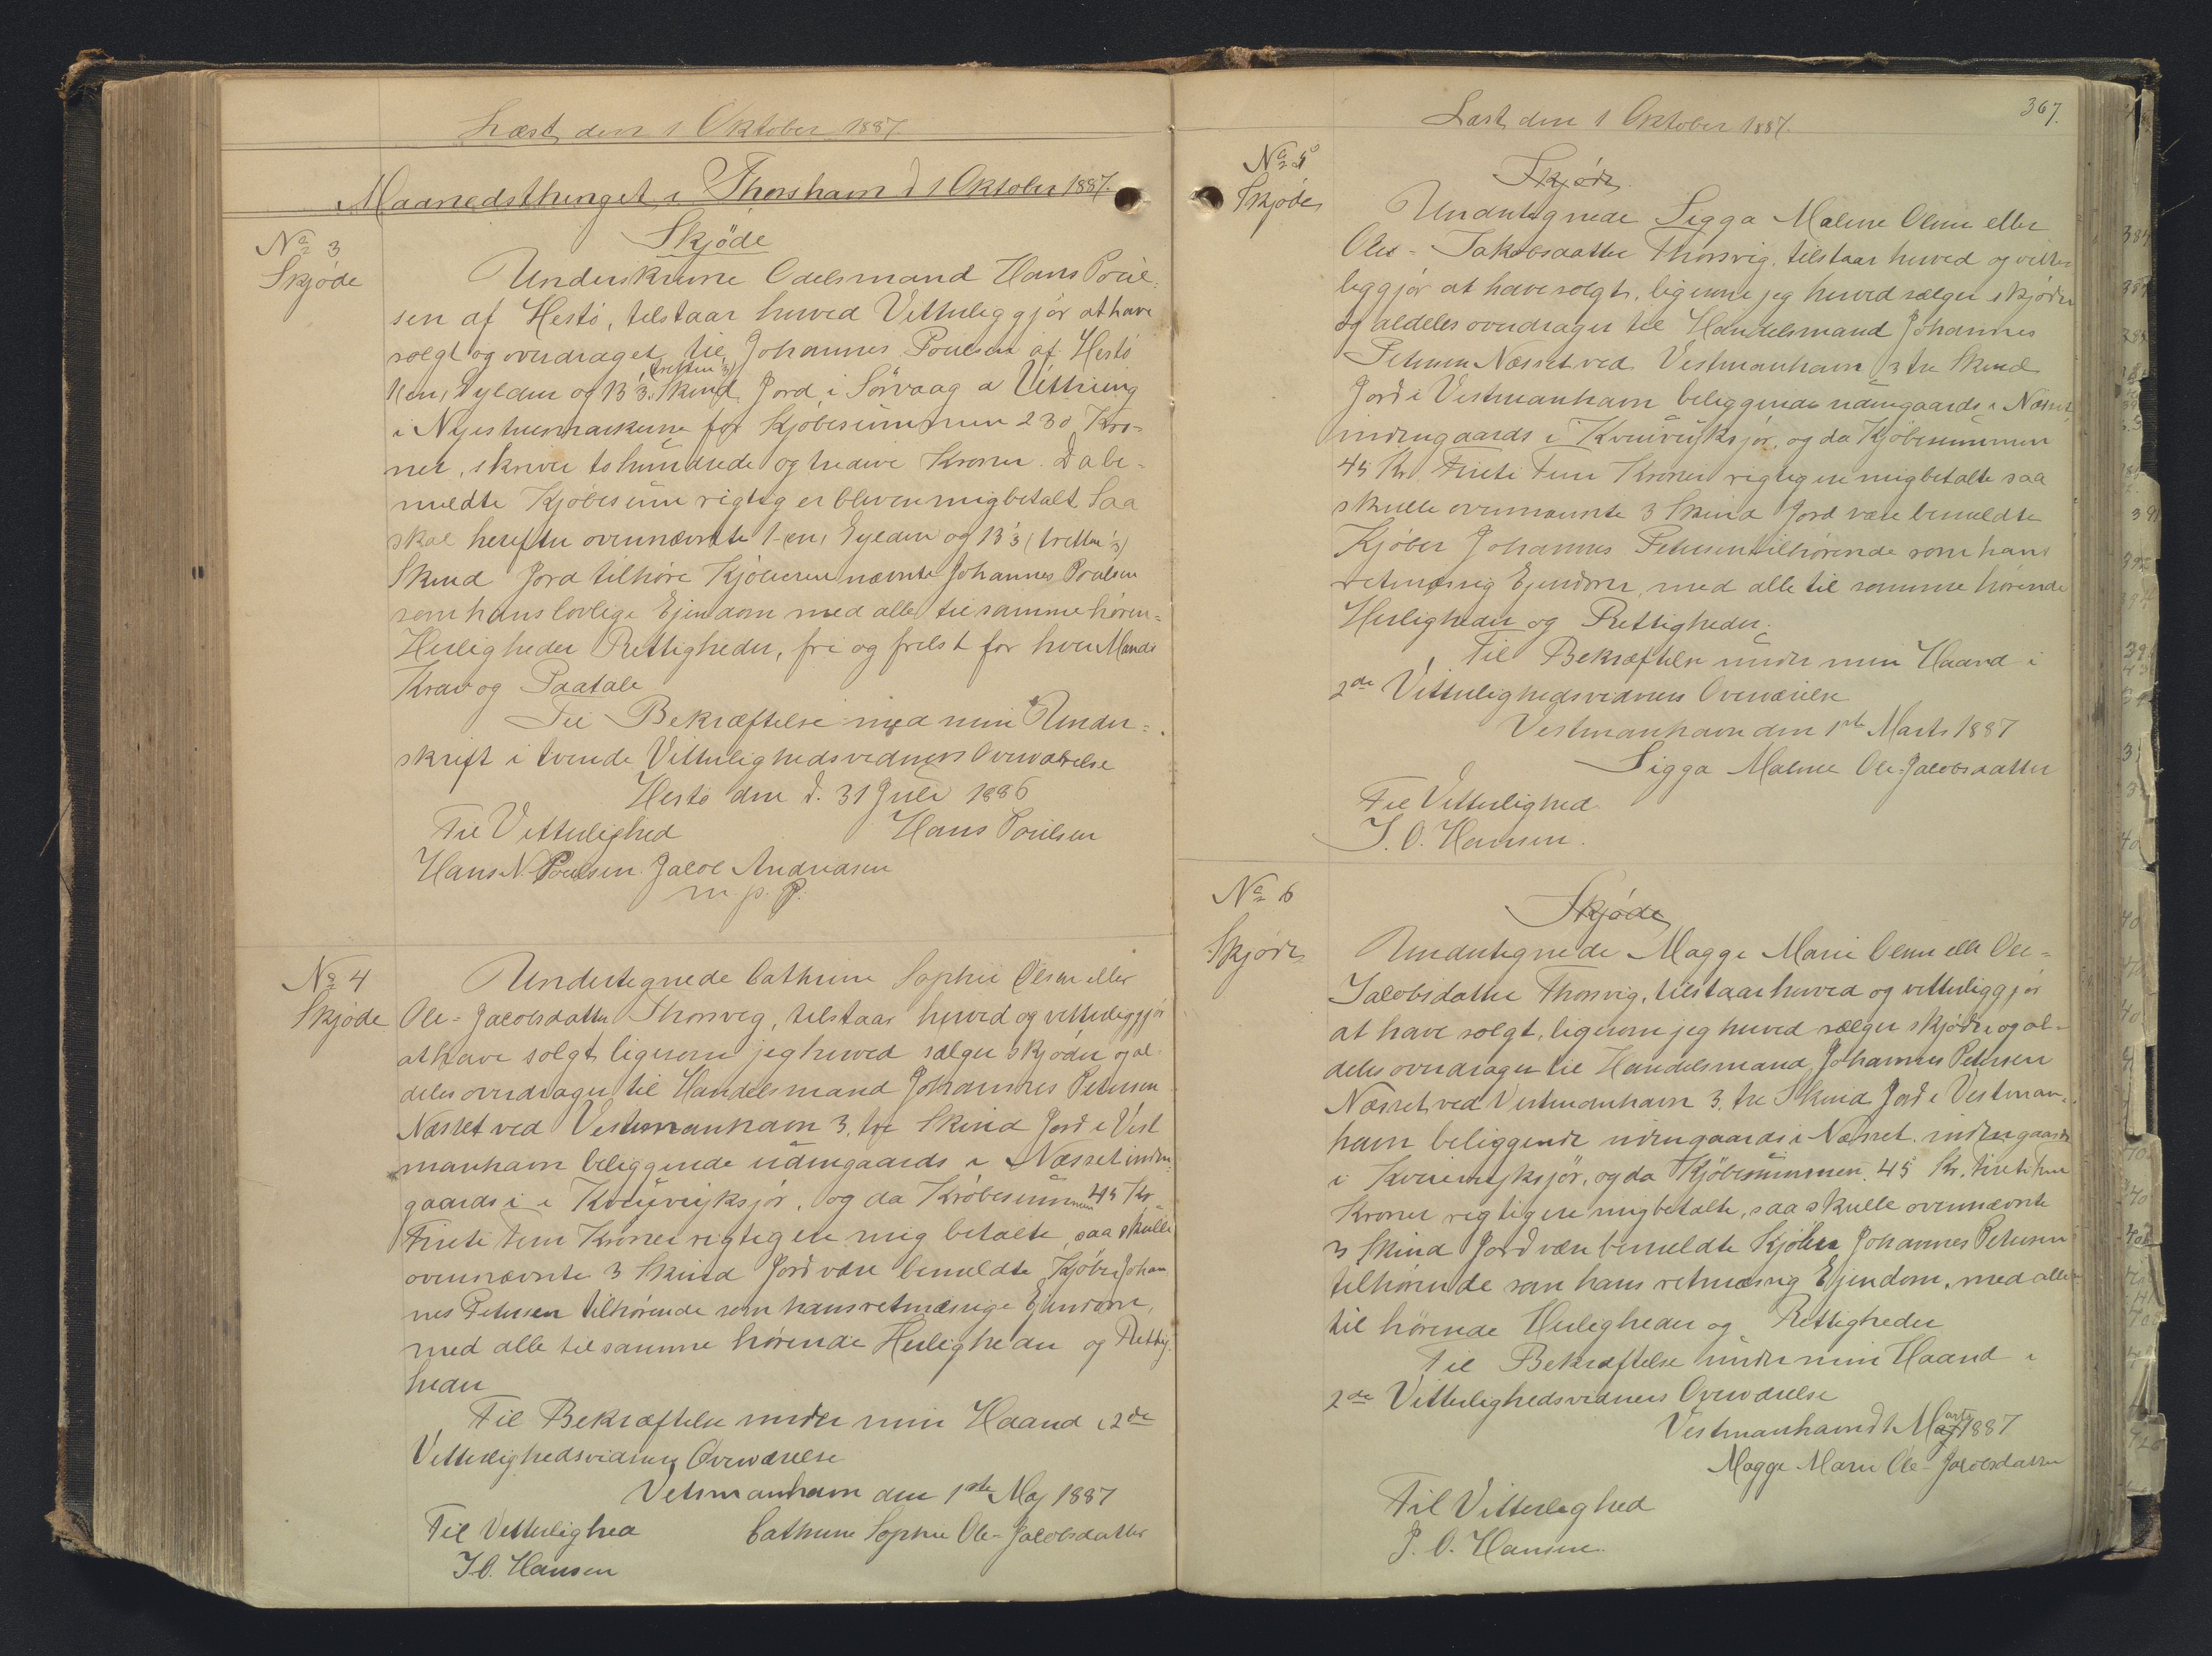 Læst den 1 Oktober 1887.
Maanedsthinget i Thorshavn d 1 Oktober 1887.
No 3
Skjøde
Skjöde
Underskrevne Odelsmand Hans Poul-
sen af Hestö, tilstaar herved Vitterliggjör at have
solgt og overdraget til Johannes Poulsen af Hestö
1 (en) Gylden og 13 1/3 (tretten 1/3) Skind Jord i Sörvaag
i for Kjöbesummen 230 Kro-
ner, skriver tohundrede og tredive Kroner. Da be-
meldte Kjöbesum rigtig er bleven mig betalt Saa
skal herefter ovennævnte 1-en, Gylden og 13 1/3 (tretten 1/3)
Skind Jord tilhöre Kjöberen nævnte Johannes Poulsen
som hans lovlige Ejendom med alle til samme hören-
Herligheder Rettigheder, fri og frelst for hver Mands
Krav og Paatale
Til Bekræftelse med min Under-
skrift i tvende Vitterlighedsvidners Overværelse
Hestö den d. 31 Juli 1886
Til Vitterlighed Hans Poulsen
Hans N. Poulsen. Jacob Andreasen
m. p. P.
No 4
Skjøde
Undertegnede Cathrine Sophie Olsen eller
Ole-Jacobsdatter Thorsvig, tilstaar herved og vitterliggjör
at have solgt, ligesom jeg herved sælger skjöder og al-
deles overdrager til Handelsmand Johannes Petersen
Næsset ved Vestmanhavn 3. tre Skind Jord i Vest
manhavn beliggende udengaards i Næsset inden-
gaards i i Kvivvijksjör, og da Kröbesummen 45 Kr-
Firetifem Kroner rigtig ere mig betalte, saa skulle
ovennævnte 3 Skind Jord være bemeldte Kjöber Johan
nes Petersen tilhörende som hans retmæssige Ejendom,
med alle til samme hörende Herligheder og Rettig-
heder
Til Bekræftelse under min Haand i 2de
Vitterlighedsvidners Overværelse
Vetsmanhavn den 1ste Maj 1887
Til Vitterlighed Cathrine Sophie Ole-Jacobsdatter
J. O. Hansen
367.
Læst den 1 Oktober 1887.
No 5
Skjøde
Skjøde
Undertegnede Sigga Malene Olsen eller
Ole-Jakobsdatter Thorsvig, tilstaar herved og vitter
liggjör at have solgt, ligesom jeg herved sælger skjöder
og aldeles overdrager til Handelsmand Johannes
Petersen Næsset ved Vestmanhavn 3 tre Skind
Jord i Vestmanhavn beliggende udengaards i Næsset
indengaards i Kvivvijksjör, og da Kjöbesummen
45 Kr. Fireti Fem Kroner rigtig ere mig betalte saa
skulle ovennævnte 3 Skind Jord være bemeldte
Kjöber Johannes Petersen tilhörende som hans
retmæssig Ejendom, med alle til samme hörende
Herligheder og Rettigheder.
Til Bekræftelse under min Haand i
2de Vitterlighedsvidners Overværelse
Vestmanhavn den 1ste Marts 1887
Sigga Malene Ole-Jacobsdatter
Til Vitterlighed
J. O. Hansen.
No 6
Skjøde
Skjøde
Undertegnede Magge Marie Olsen eller Ole-
Jacobsdatter Thorsvig, tilstaar herved og vitterliggjör
at have solgt, ligesom jeg herved sælger skjöder og al-
deles overdrager til Handelsmand Johannes Petersen
Næsset ved Vestmanhavn 3. tre Skind Jord i Vestman-
havn beliggende udengaards i Næsset. indengaards
i Kvivvijksjör, og da Kjöbesummen 45 Kr. Firetifem
Kroner rigtig ere mig betalte, saa skulle ovennævnte
3 Skind Jord være bemeldte Kjöber Johannes Petersen
tilhörende som hans retmæssig Ejendom, med alle
til hörende Herligheder og Rettigheder
Til Bekræftelse under min Haand i
2de Vitterlighedsvidners Overværelse
Vestmanhavn d 1 Marts 1887
Magge Marie Ole-Jacobsdatter
Til Vitterlighed
J. O. Hansen.